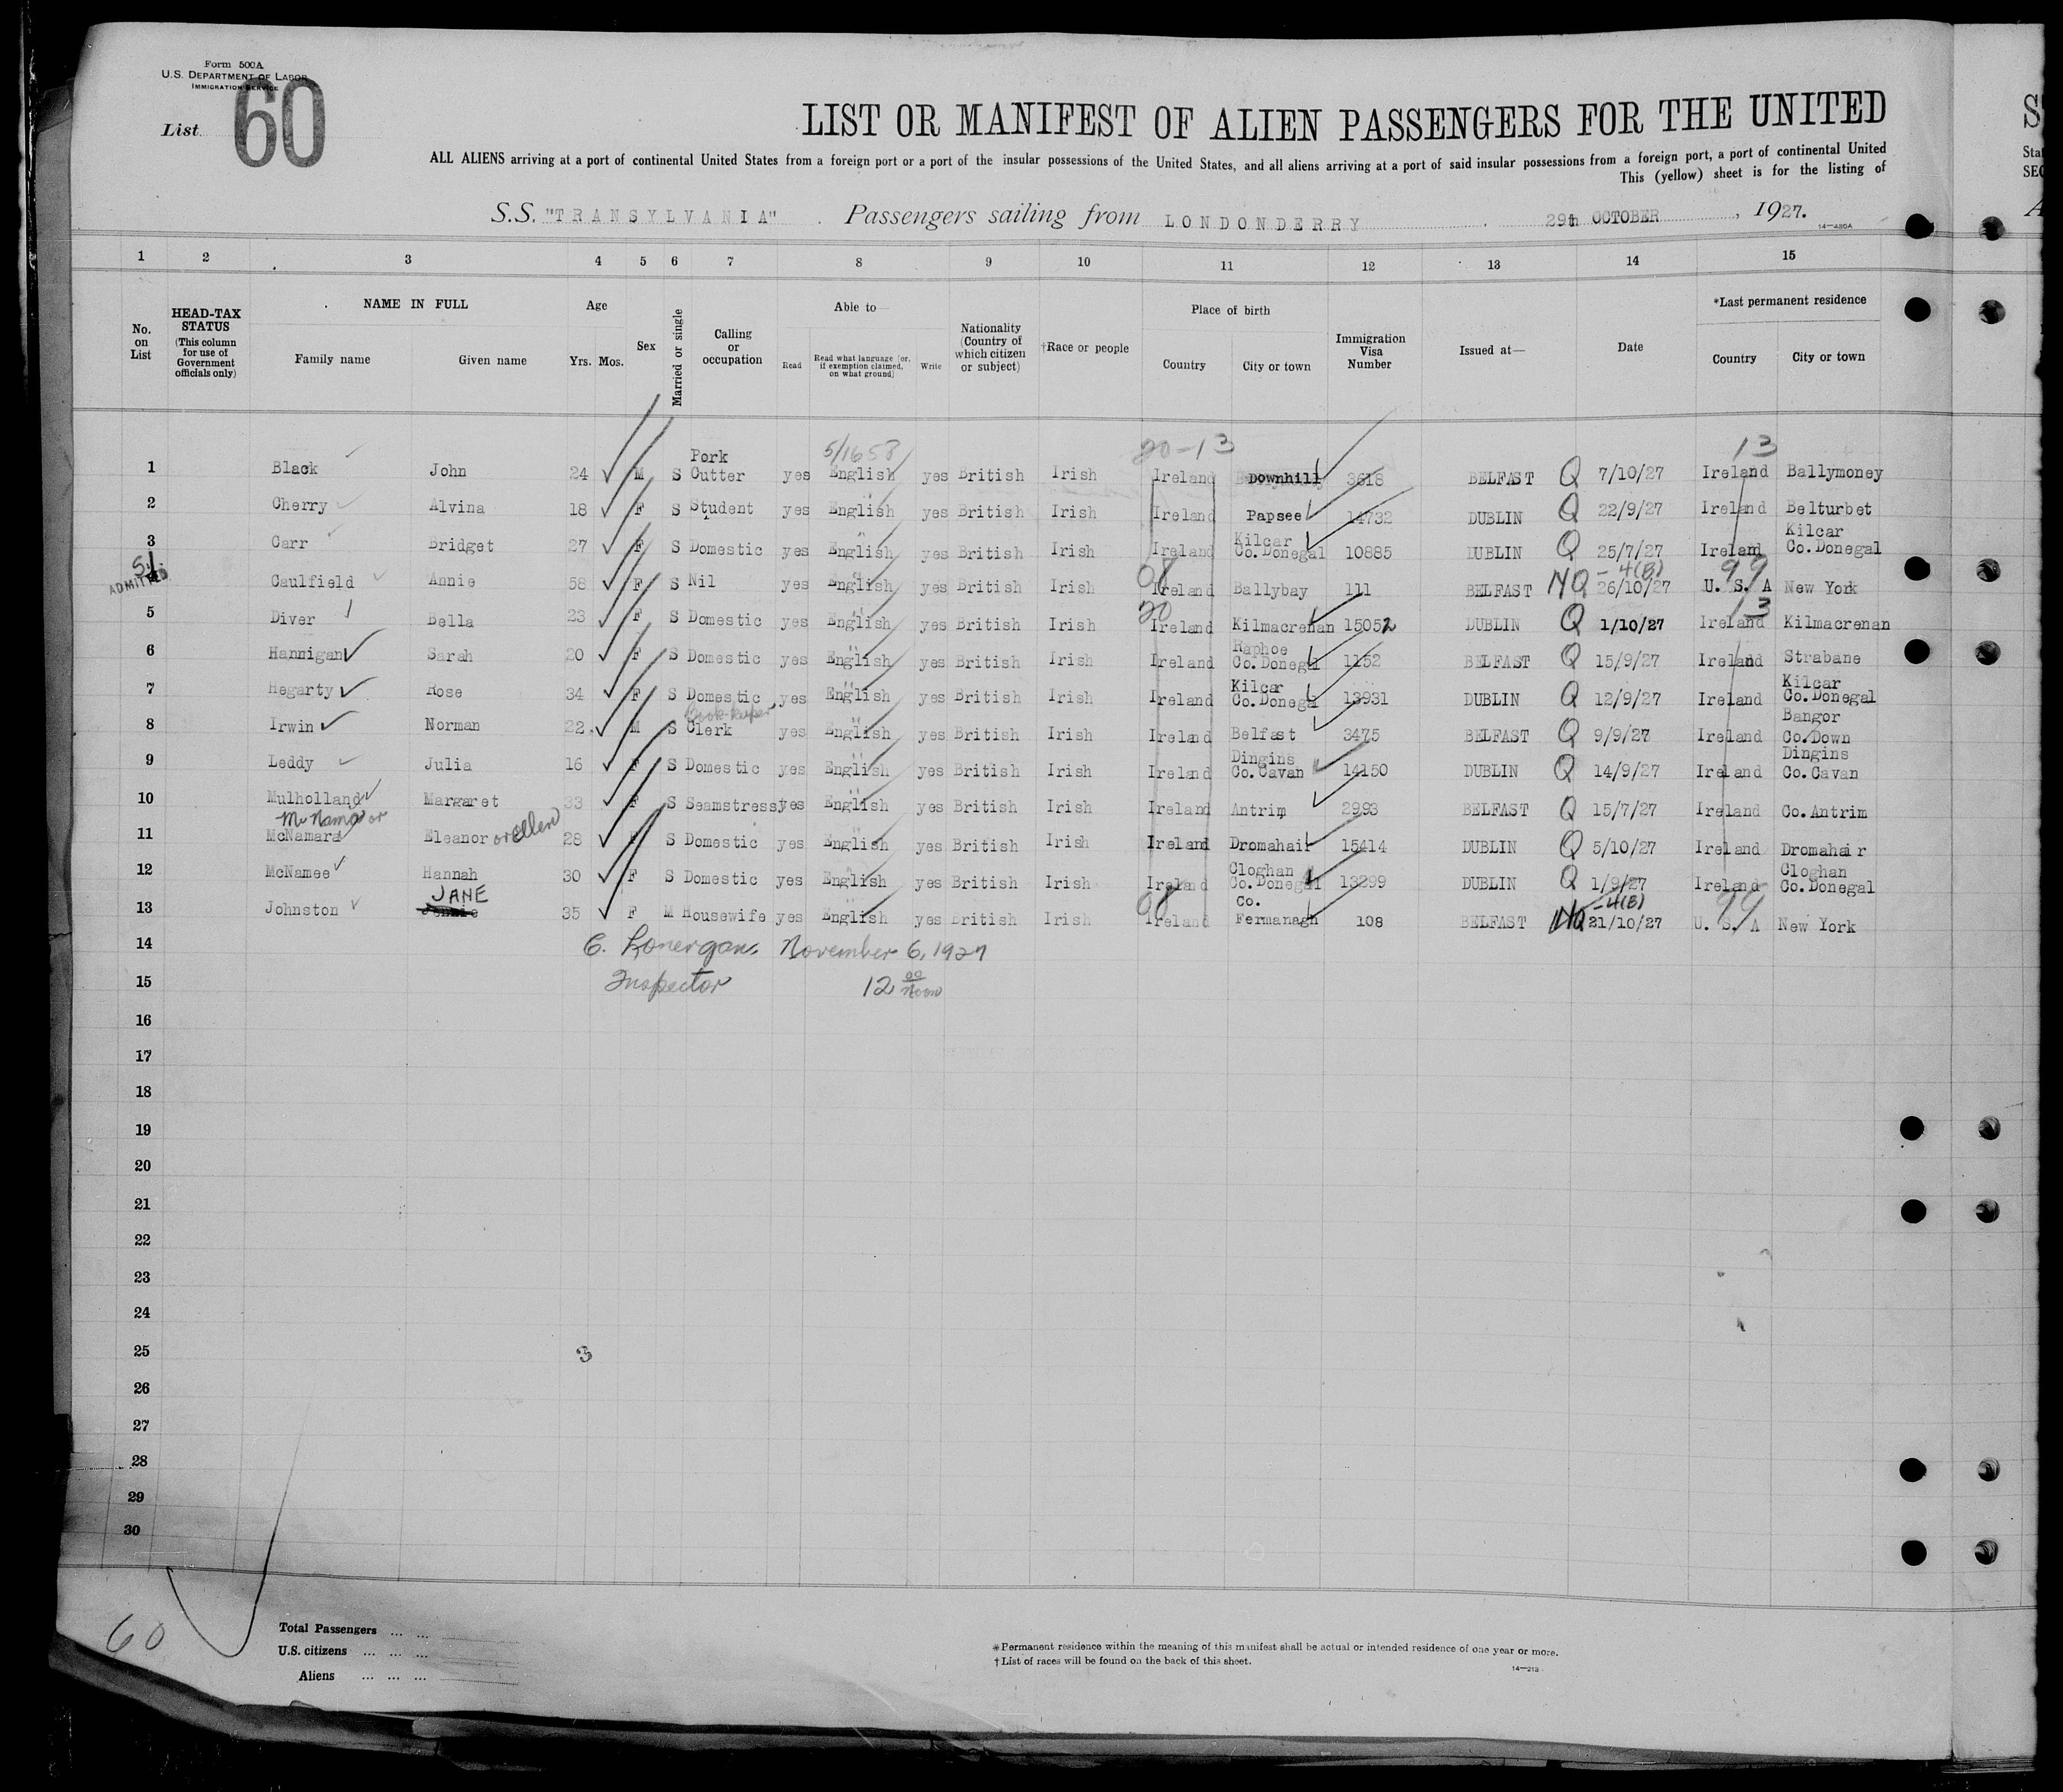 Form 500A
U.S. DEPARTMENT OF LABOR
IMMIGRATION SERVICE
List 60
LIST OR MANIFEST OF ALIEN PASSENGERS FOR THE UNITED
ALL ALIENS arriving at a port of continental United States from a foreign port or a port of the insular possessions of the United States, and all aliens arriving at a port of said insular possessions from a foreign port, a port of continental United
This (yellow) sheet is for the listing of
S.S. "TRANSYLVANIA" . Passengers sailing from LONDONDERRY . 29th OCTOBER , 1927.
14—480A
1 2 3 4 5 6 7 8 9 10 11 12 13 14 15
No. on List
HEAD-TAX STATUS (This column for use of Government officials only)
NAME IN FULL
Family name Given name
Age
Yrs. Mos.
Sex
Married or single
Calling or occupation
Able to—
Read
Read what language [or, if exemption claimed, on what ground]
Write
Nationality (Country of which citizen or subject)
†Race or people
Place of birth
Country City or town
Immigration Visa Number
Issued at—
Date
*Last permanent residence
Country City or town
5/1658 20-13 13
1 Black John 24 M S Pork Cutter yes English yes British Irish Ireland Downhill 3618 BELFAST Q 7/10/27 Ireland Ballymoney
2 Cherry Alvina 18 F S Student yes English yes British Irish Ireland Papsee 14732 DUBLIN Q 22/9/27 Ireland Belturbet
3 Carr Bridget 27 F S Domestic yes English yes British Irish Ireland Kilcar Co.Donegal 10885 DUBLIN Q 25/7/27 Ireland Kilcar Co.Donegal
ADMITTED
Caulfield Annie 58 F S Nil yes English yes British Irish Ireland Ballybay 111 BELFAST NQ -4(B) 26/10/27 99 U. S. A New York
5 Diver Bella 23 F S Domestic yes English yes British Irish 20 Ireland Kilmacrenan 15052 DUBLIN Q 1/10/27 13 Ireland Kilmacrenan
6 Hannigan Sarah 20 F S Domestic yes English yes British Irish Ireland Raphoe Co.Donegal 1152 BELFAST Q 15/9/27 Ireland Strabane
7 Hegarty Rose 34 F S Domestic yes English yes British Irish Ireland Kilcar Co.Donegal 13931 DUBLIN Q 12/9/27 Ireland Kilcar Co.Donegal
8 Irwin Norman 22 M S Book-keeper Clerk yes English yes British Irish Ireland Belfast 3475 BELFAST Q 9/9/27 Ireland Bangor Co.Down
9 Leddy Julia 16 F S Domestic yes English yes British Irish Ireland Dingins Co.Cavan 14150 DUBLIN Q 14/9/27 Ireland Dingins Co.Cavan
10 Mulholland Margaret 33 F S Seamstress yes English yes British Irish Ireland Antrim 2993 BELFAST Q 15/7/27 Ireland Co.Antrim
11 McNamara Eleanor or Ellen 28 F S Domestic yes English yes British Irish Ireland Dromahair 15414 DUBLIN Q 5/10/27 Ireland Dromahair
12 McNamee Hannah 30 F S Domestic yes English yes British Irish Ireland Cloghan Co.Donegal 13299 DUBLIN Q 1/9/27 Ireland Cloghan Co.Donegal
13 Johnston JANE 35 F M Housewife yes English yes British Irish Ireland Co. Fermanagh 108 BELFAST NQ -4(B) 21/10/27 99 U. S. A New York
14 C. Lonergan, November 6, 1927
15 Inspector 12 00 Noon
16
17
18
19
20
21
22
23
24
25 3
26
27
28
29
30
60
Total Passengers ... ...
U.S. citizens ... ... ...
Aliens ... ... ...
*Permanent residence within the meaning of this manifest shall be actual or intended residence of one year or more.
†List of races will be found on the back of this sheet.
14—213